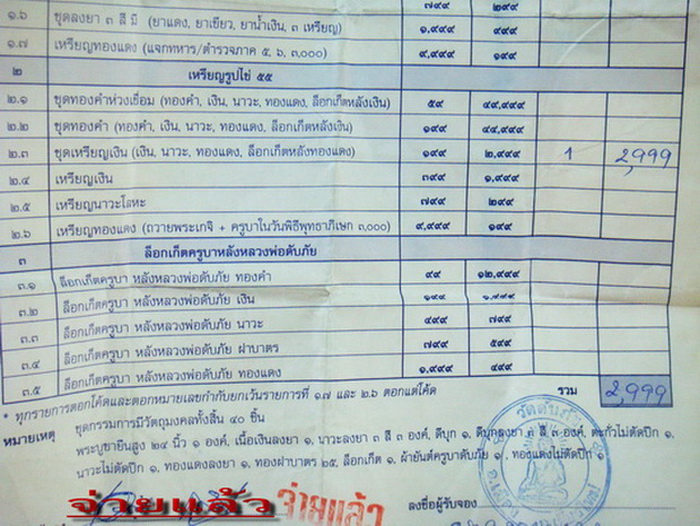 ๗๙๙ ๒๙๙
๑.๖ ชุดลงยา ๓ สี มี (ยาแดง, ยาเขียว, ยาน้ำเงิน, ๓ เหรียญ) ๑,๙๙๙ ๙๙๙
๑.๗ เหรียญทองแดง (แจกทหาร/ตำรวจภาค ๕, ๖, ๓,๐๐๐) ๙,๙๙๙ ๑๙๙
๒ เหรียญรูปไข่ ๕๕
๒.๑ ชุดทองคำห่วงเชื่อม (ทองคำ, เงิน, นาวะ, ทองแดง, ล็อกเก็ตหลังเงิน) ๕๙ ๔๙,๙๙๙
๒.๒ ชุดทองคำ (ทองคำ, เงิน, นาวะ, ทองแดง, ล็อกเก็ตหลังเงิน) ๑๙๙ ๔๔,๙๙๙
๒.๓ ชุดเหรียญเงิน (เงิน, นาวะ, ทองแดง, ล็อกเก็ตหลังทองแดง) ๑๙๙ ๒,๙๙๙ 1 2,999
๒.๔ เหรียญเงิน ๓๙๙ ๑,๙๙๙
๒.๕ เหรียญนาวะโลหะ ๗๙๙ ๒๙๙
๒.๖ เหรียญทองแดง (ถวายพระเกจิ + ครูบาในวันพิธีพุทธาภิเษก ๓,๐๐๐) ๙,๙๙๙ ๑๙๙
๓ ล็อกเก็ตครูบาหลังหลวงพ่อดับภัย
๓.๑ ล็อกเก็ตครูบา หลังหลวงพ่อดับภัย ทองคำ ๙๙ ๑๒,๙๙๙
๓.๒ ล็อกเก็ตครูบา หลังหลวงพ่อดับภัย เงิน ๑๙๙ ๑,๙๙๙
๓.๓ ล็อกเก็ตครูบา หลังหลวงพ่อดับภัย นาวะ ๔๙๙ ๗๙๙
๓.๔ ล็อกเก็ตครูบา หลังหลวงพ่อดับภัย ฝาบาตร ๗๙๙ ๕๙๙
๓.๕ ล็อกเก็ตครูบา หลังหลวงพ่อดับภัย ทองแดง ๑,๙๙๙ ๔๙๙
รวม 2,999
* ทุกรายการตอกโค้ดและตอกหมายเลขกำกับยกเว้นรายการที่ ๑.๗ และ ๒.๖ ตอกแต่โค้ด
หมายเหตุ ชุดกรรมการมีวัตถุมงคลทั้งสิ้น ๔๐ ชิ้น
พระบูชายืนสูง ๒๔ นิ้ว ๑ องค์, เนื้อเงินลงยา ๑, นาวะลงยา ๓ สี ๓ องค์, ดีบุก ๑, ดีบุกลงยา ๓ สี ๓ องค์, ตะกั่วไม่ตัดปีก ๑,
นาวะไม่ตัดปีก ๑, ทองแดงลงยา ๑, ทองฝาบาตร ๒๕, ล็อกเก็ต ๑, ผ้ายันต์ครูบาดับภัย ๑, ทองแดงไม่ตัดปีก ๑
จ่ายแล้ว จ่ายแล้ว ลงชื่อผู้รับจอง